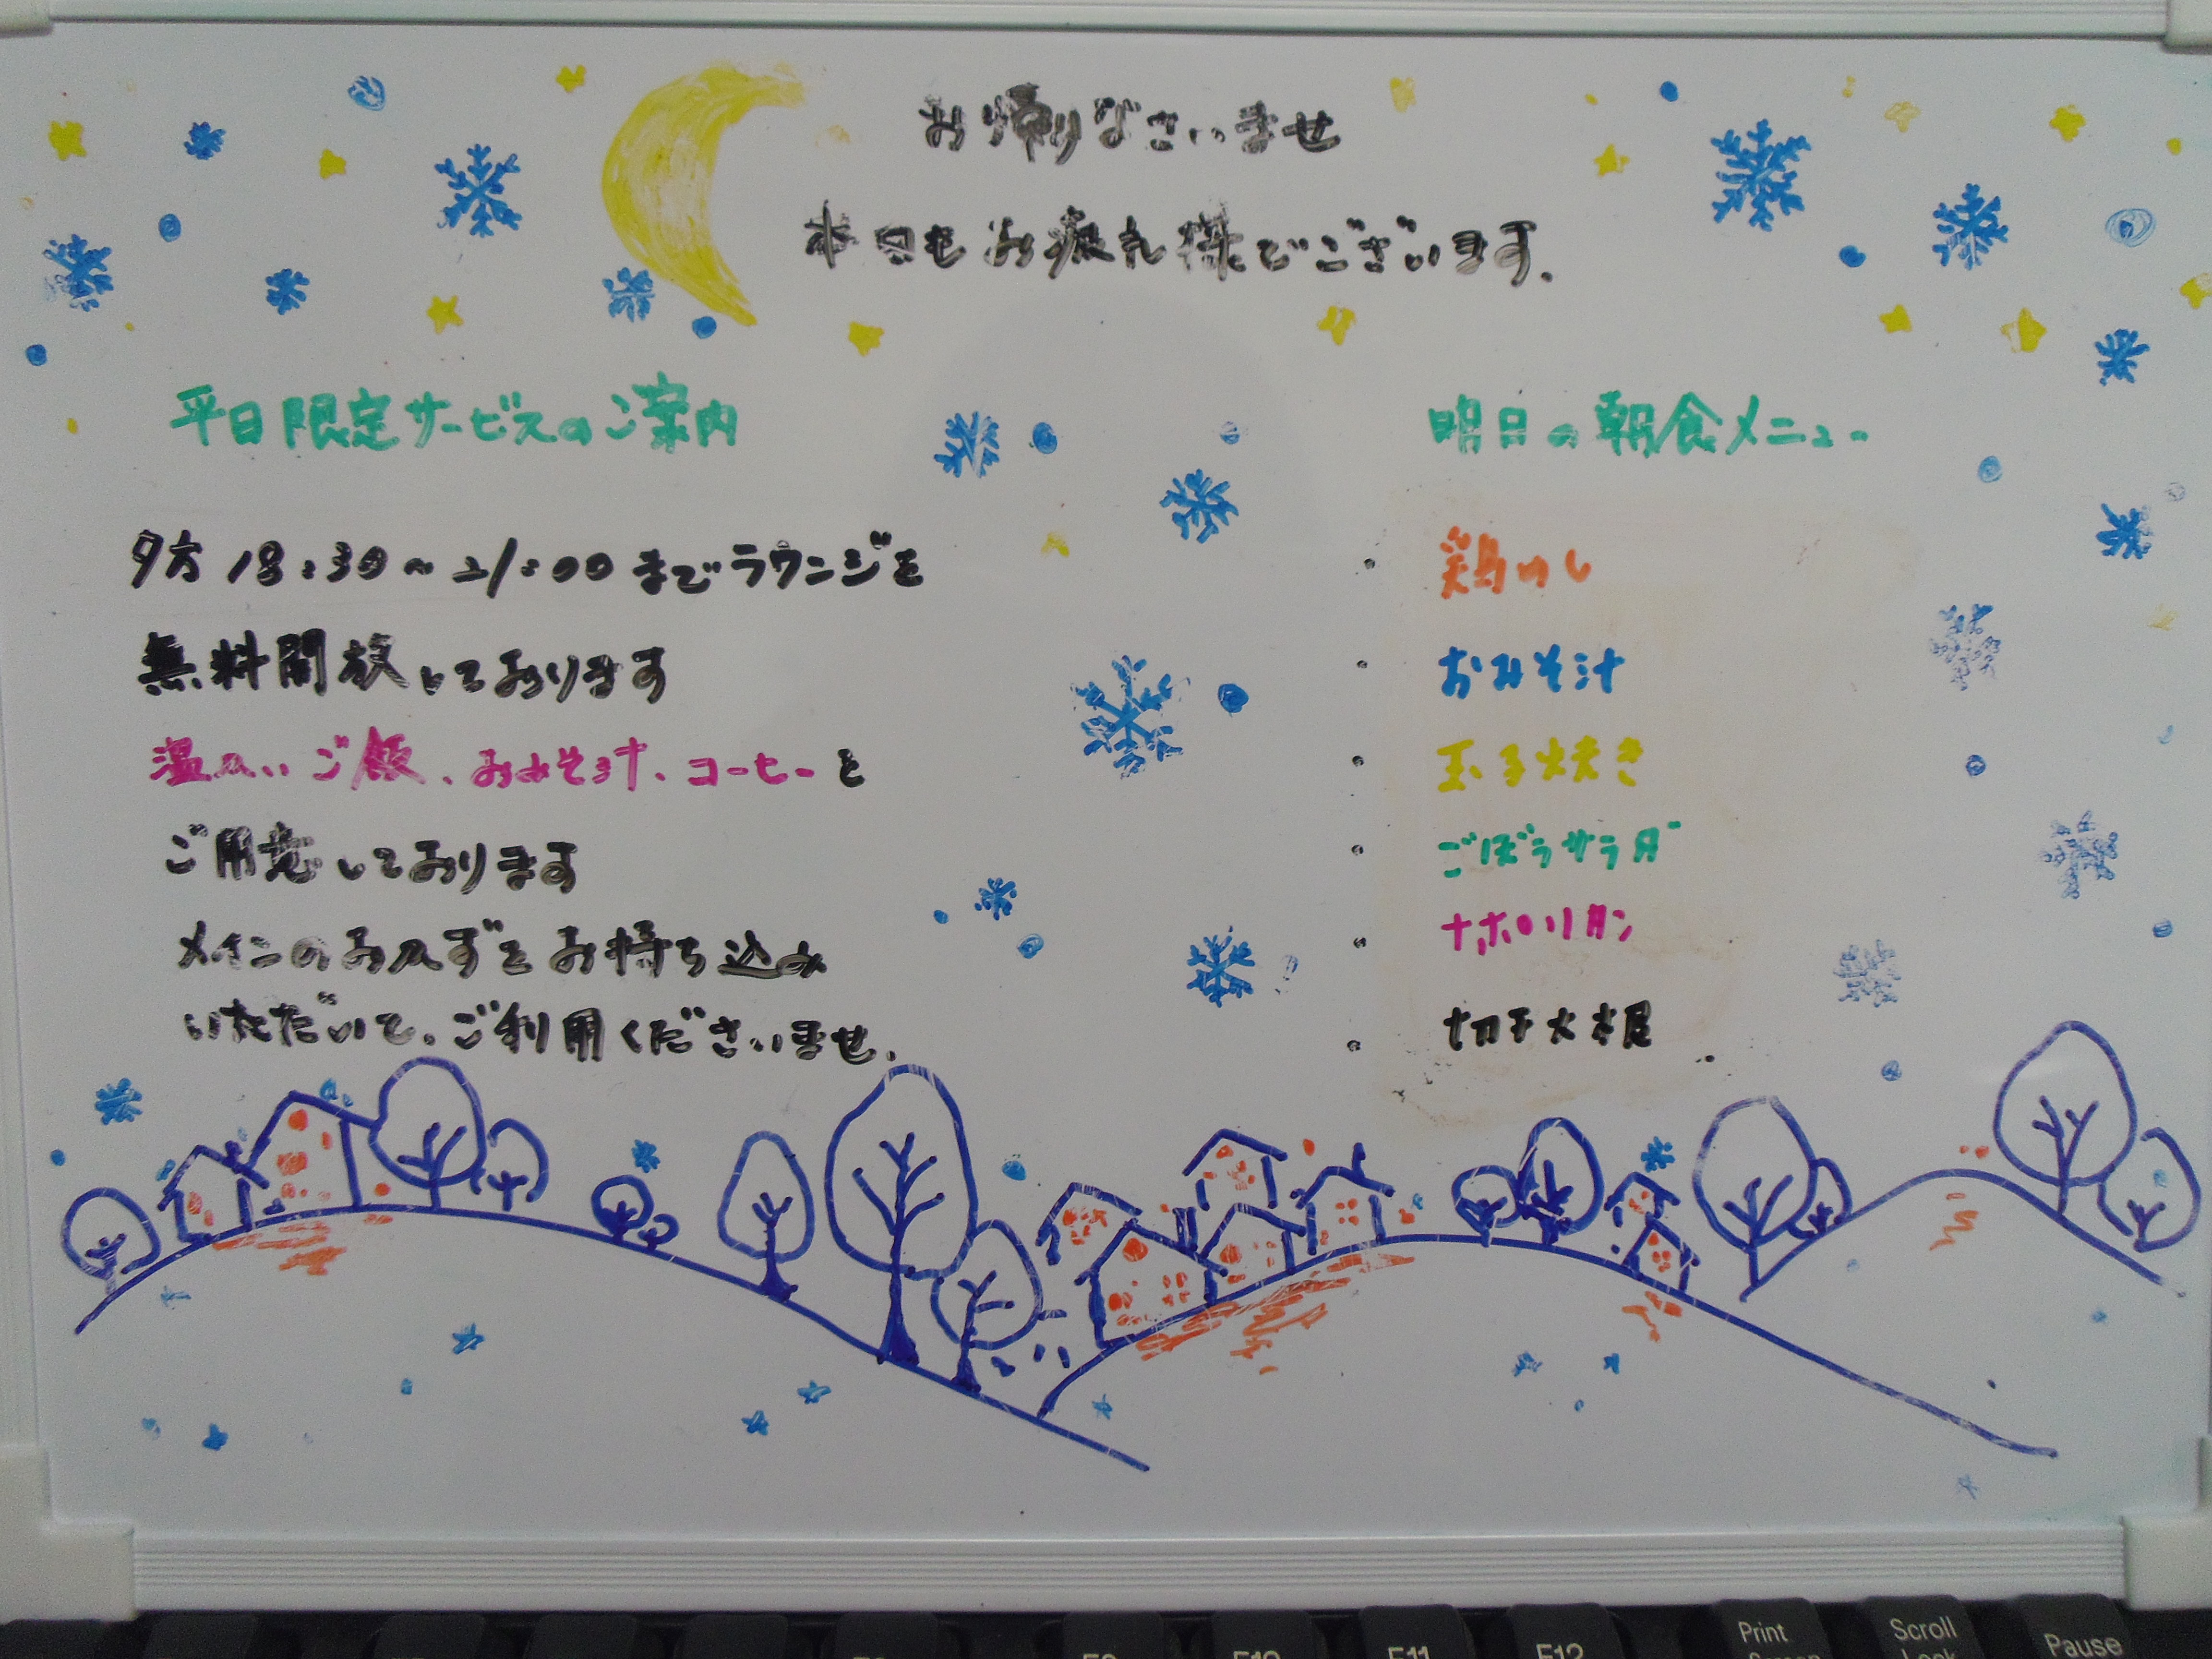 お帰りなさいませ
本日もお疲れ様でございます.
平日限定サービスのご案内
夕方 18:30~21:00 までラウンジを
無料開放しております
温かいご飯、おみそ汁、コーヒーを
ご用意しております
メインのおかずをお持ち込み
いただいて、ご利用くださいませ.
明日の朝食メニュー
・ 鶏めし
・ おみそ汁
・ 玉子焼き
・ ごぼうサラダ
・ ナポリタン
・ 切干大根
F10
F11
F12
Print
Scroll
Pause